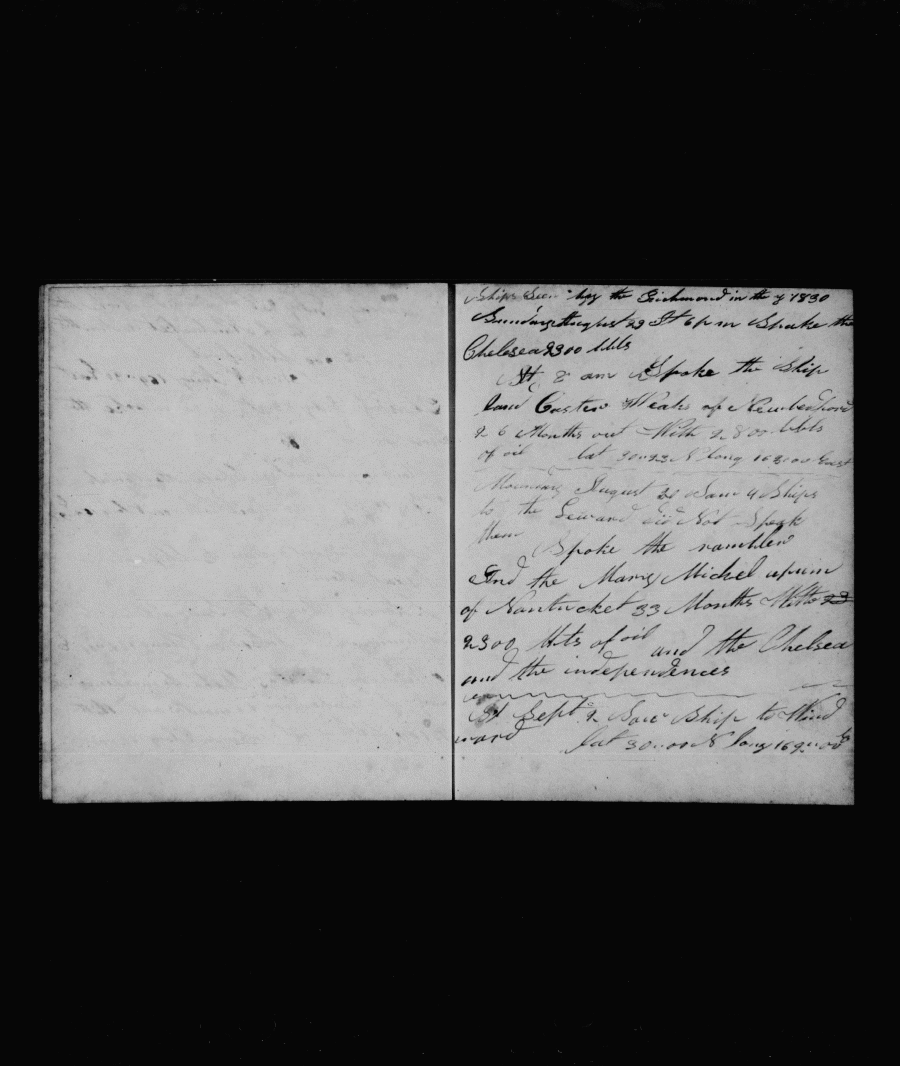 Ships Seen by the Richmond in the y 1830
Sunday August 29 At 6 pm Spoke the
Chelsea 2300 bbls
At 8 am Spoke the Ship
Weaks of Newbedford
26 Months out With 2800 bbls
of oil lat 30 23 N long 163 00 East
August 30 Saw 4 Ships
to the Leward did Not Speak
them
Spoke the rambler
And the Marry Mickel
of Nantucket 33 Months With 23
2300 bbls of oil and the Chelsea
and the independences
Sept 2 Saw Ship to Wind
ward lat 30 00 N long 169 00